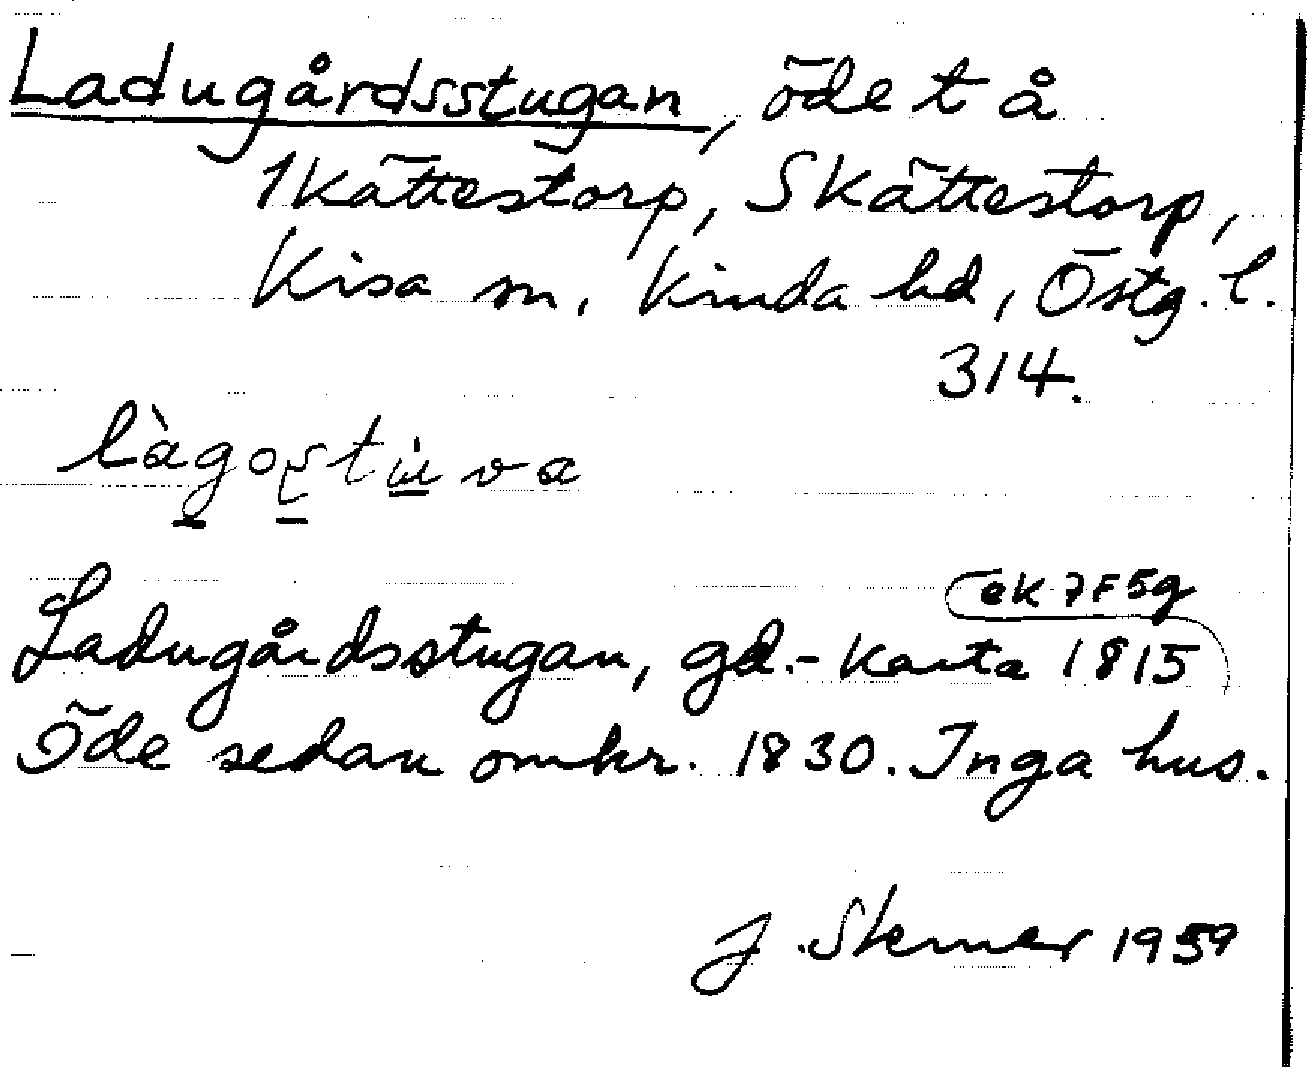 Ladugårdsstugan, öde t å
1 Kättestorp, S Kättestorp,
Kisa sn, Kinda hd, Östg. l.
314.
làgoștu̇va
ek 7F5g
Ladugårdsstugan, gd.- karta 1815
Öde sedan omkr. 1830. Inga hus.
J. Sterner 1959